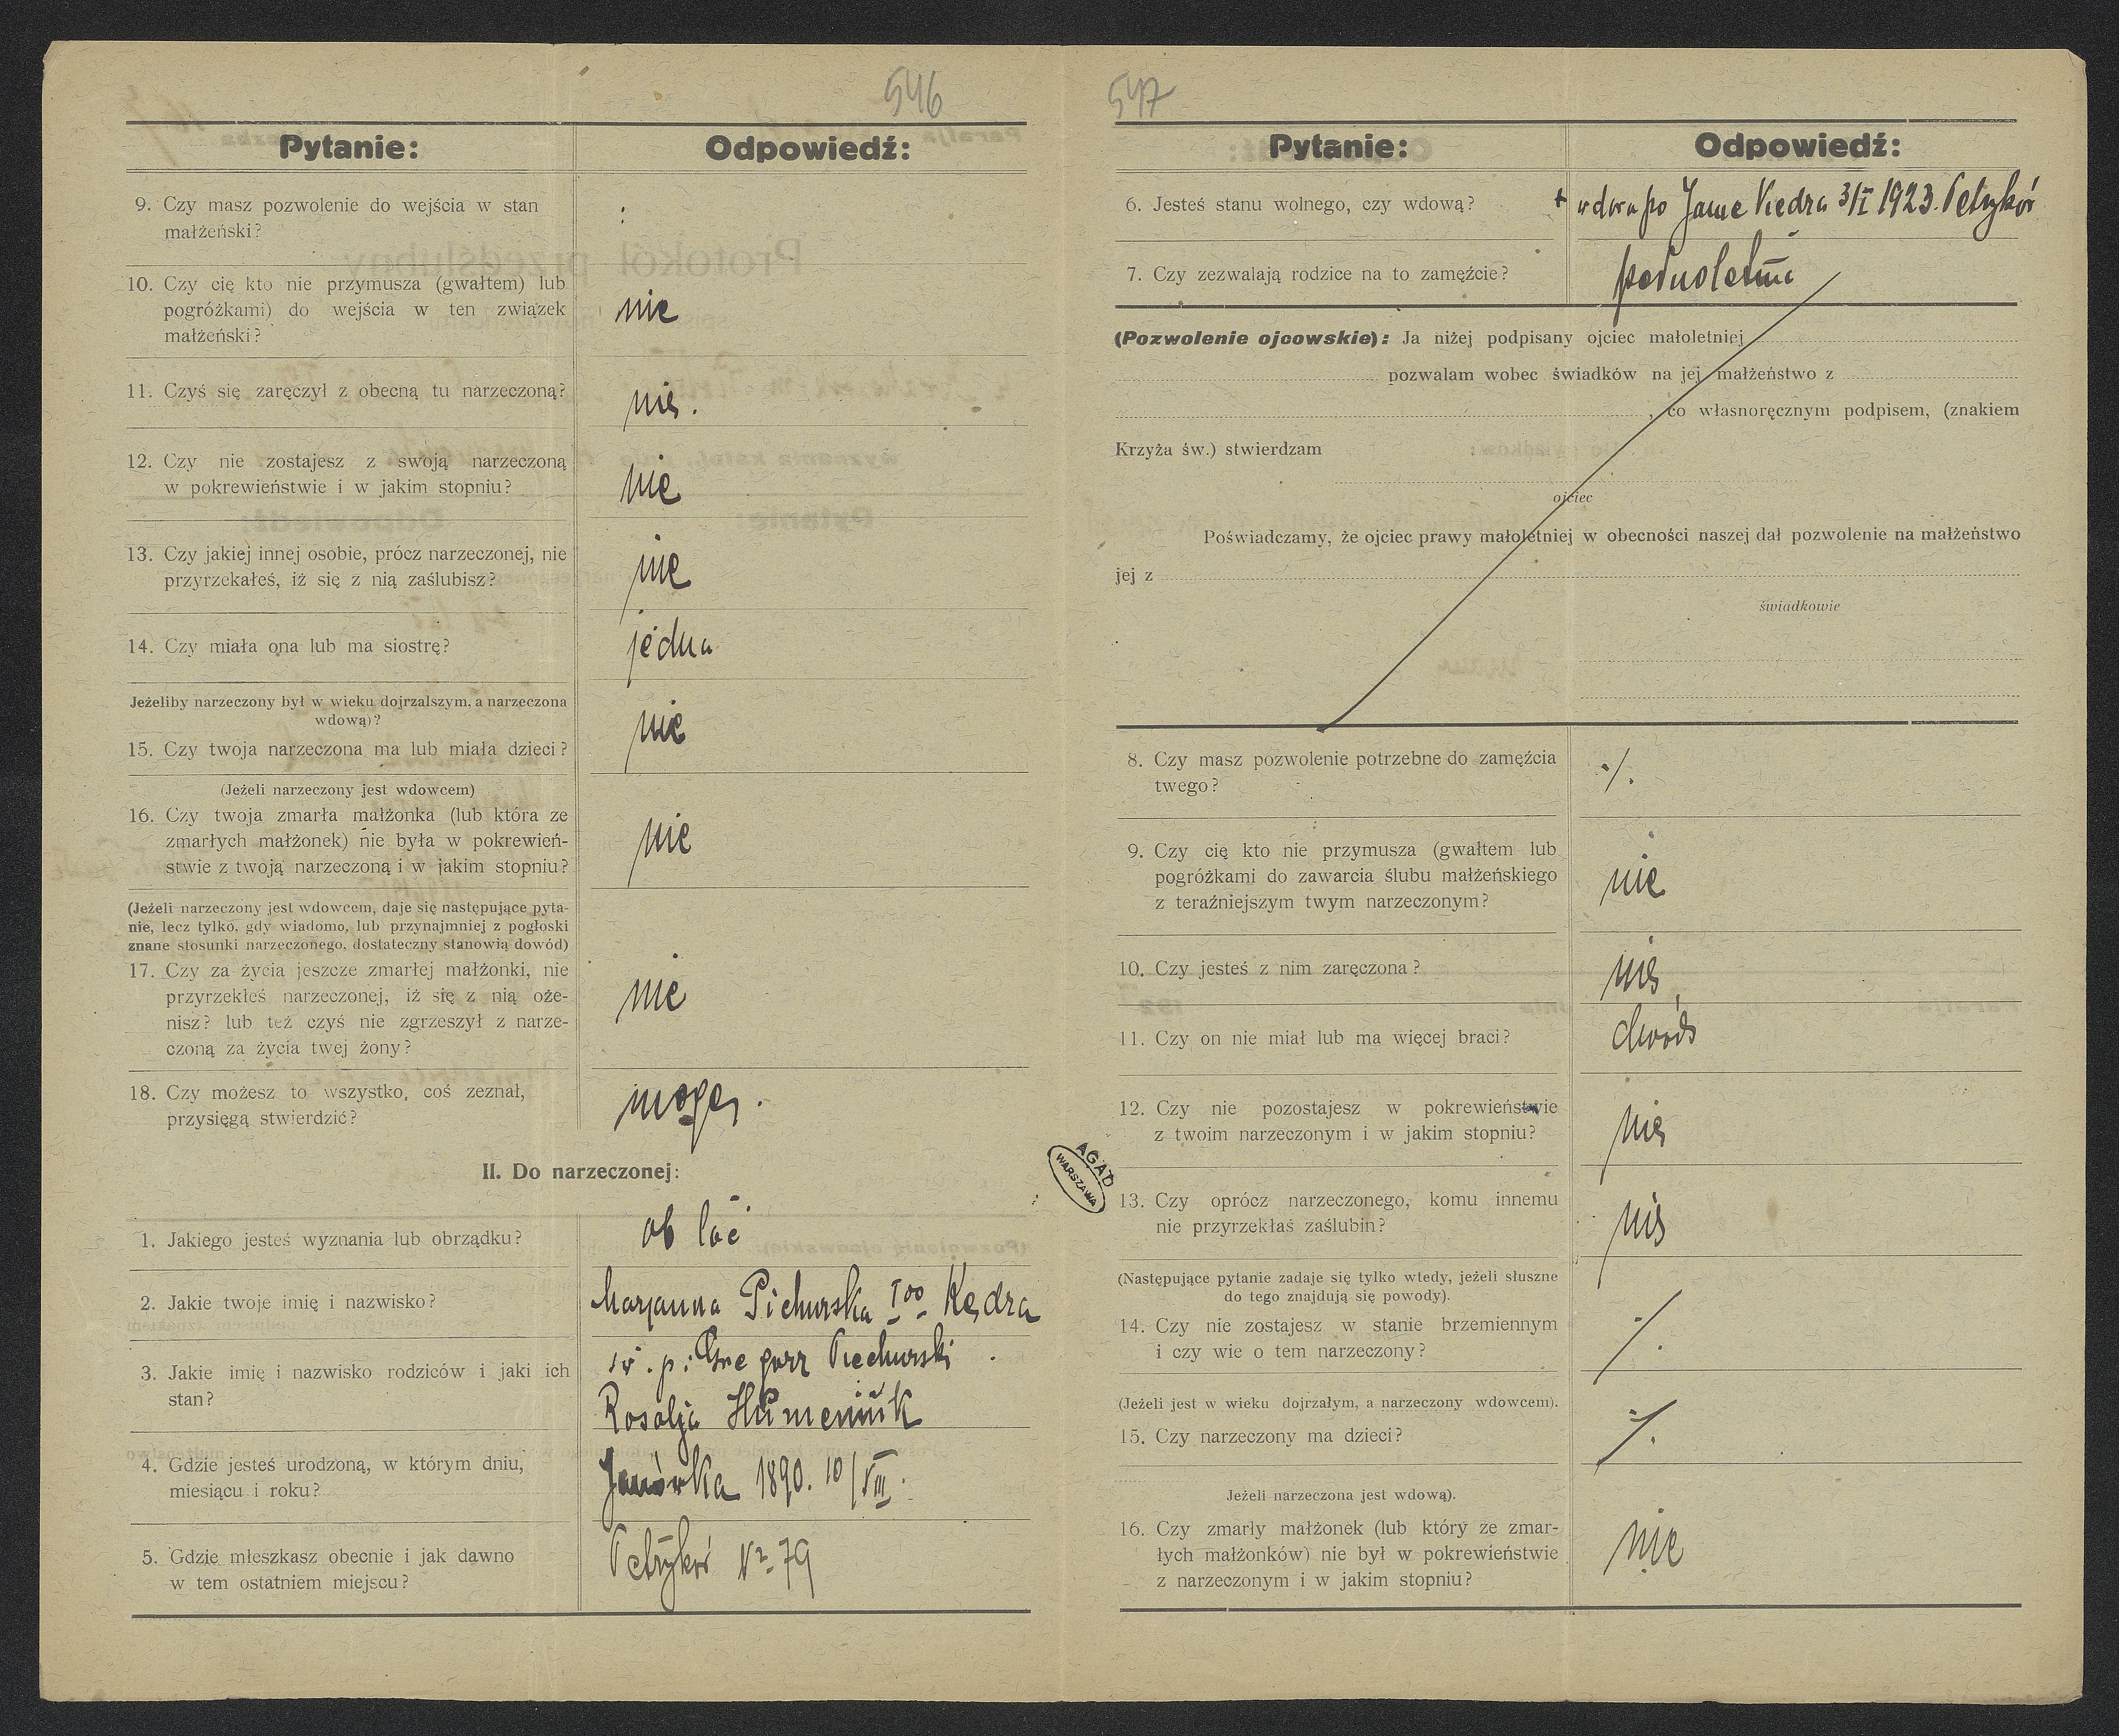 546
Pytanie:
Odpowiedź:
9. Czy masz pozwolenie do wejścia w stan
małżeński?
10. Czy cię kto nie przymusza (gwałtem) lub
pogróżkami) do wejścia w ten związek
małżeński?
nie
11. Czyś się zaręczył z obecną tu narzeczoną?
nie.
12. Czy nie zostajesz z swoją narzeczoną
w pokrewieństwie i w jakim stopniu?
nie
13. Czy jakiej innej osobie, prócz narzeczonej, nie
przyrzekałeś, iż się z nią zaślubisz?
nie
14. Czy miała ona lub ma siostrę?
jedna
Jeżeliby narzeczony był w wieku dojrzalszym, a narzeczona
wdową)?
15. Czy twoja narzeczona ma lub miała dzieci?
nie
(Jeżeli narzeczony jest wdowcem)
16. Czy twoja zmarła małżonka (lub która ze
zmarłych małżonek) nie była w pokrewień-
stwie z twoją narzeczoną i w jakim stopniu?
nie
(Jeżeli narzeczony jest wdowcem, daje się następujące pyta-
nie, lecz tylko, gdy wiadomo, lub przynajmniej z pogłoski
znane stosunki narzeczonego, dostateczny stanowią dowód)
17. Czy za życia jeszcze zmarłej małżonki, nie
przyrzekłeś narzeczonej, iż się z nią oże-
nisz? lub też czyś nie zgrzeszył z narze-
czoną za życia twej żony?
nie
18. Czy możesz to wszystko, coś zeznał,
przysięgą stwierdzić?
mogę.
II. Do narzeczonej:
1. Jakiego jesteś wyznania lub obrządku?
ob łać
2. Jakie twoje imię i nazwisko?
Marjanna Pichurska I voo Kędra
3. Jakie imię i nazwisko rodziców i jaki ich
stan?
św. p. Gregorz Piechurski
Rosalja Humeniuk
4. Gdzie jesteś urodzoną, w którym dniu,
miesiącu i roku?
Janówka 1890. 10/VIII.
5. Gdzie mieszkasz obecnie i jak dawno
w tem ostatniem miejscu?
Petryków No 79
AGAD
WARSZAWA
547
Pytanie:
Odpowiedź:
6. Jesteś stanu wolnego, czy wdową?
+ wdowa po Janie Kedra 3/I 1923. Petryków
7. Czy zezwalają rodzice na to zamęźcie?
pełnoletnia
(Pozwolenie ojcowskie): Ja niżej podpisany ojciec małoletniej
pozwalam wobec świadków na jej małżeństwo z
, co własnoręcznym podpisem, (znakiem
Krzyża św.) stwierdzam
ojciec
Poświadczamy, że ojciec prawy małoletniej w obecności naszej dał pozwolenie na małżeństwo
jej z
świadkowie
8. Czy masz pozwolenie potrzebne do zamęźcia
twego?
./.
9. Czy cię kto nie przymusza (gwałtem lub
pogróżkami do zawarcia ślubu małżeńskiego
z teraźniejszym twym narzeczonym?
nie
10. Czy jesteś z nim zaręczona?
nie
11. Czy on nie miał lub ma więcej braci?
12. Czy nie pozostajesz w pokrewieństwie
z twoim narzeczonym i w jakim stopniu?
nie
13. Czy oprócz narzeczonego, komu innemu
nie przyrzekłaś zaślubin?
nie
(Następujące pytanie zadaje się tylko wtedy, jeżeli słuszne
do tego znajdują się powody).
14. Czy nie zostajesz w stanie brzemiennym
i czy wie o tem narzeczony?
./.
(Jeżeli jest w wieku dojrzałym, a narzeczony wdowcem).
15. Czy narzeczony ma dzieci?
./.
Jeżeli narzeczona jest wdową).
16. Czy zmarły małżonek (lub który ze zmar-
łych małżonków) nie był w pokrewieństwie
z narzeczonym i w jakim stopniu?
nie